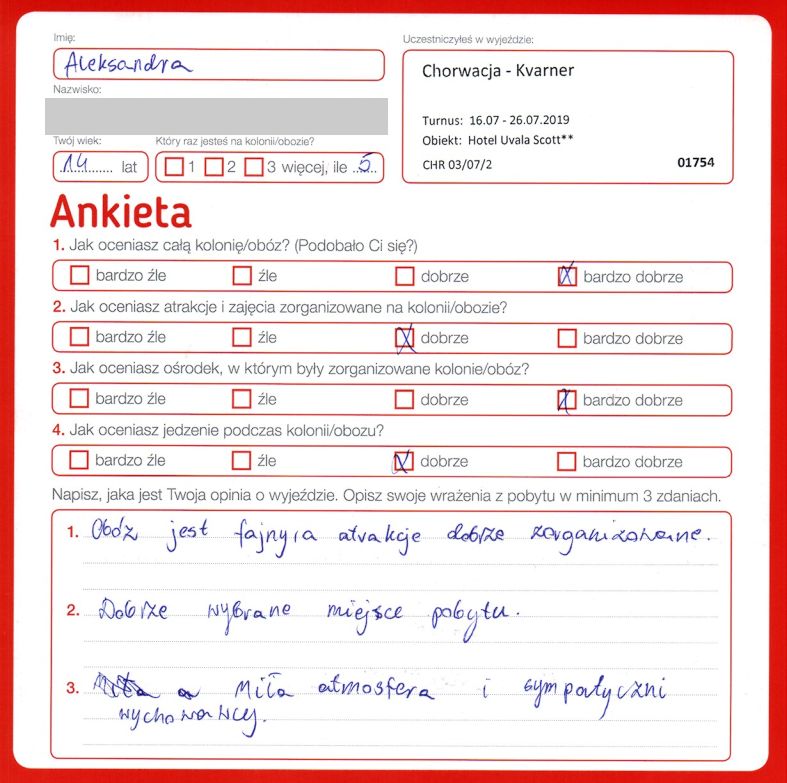 Imię:
Aleksandra
Nazwisko:
Twój wiek:
14 lat
Który raz jesteś na kolonii/obozie?
1 2 3 więcej, ile 5
Uczestniczyłeś w wyjeździe:
Chorwacja - Kvarner
Turnus: 16.07 - 26.07.2019
Obiekt: Hotel Uvala Scott**
CHR 03/07/2 01754
Ankieta
1. Jak oceniasz całą kolonię/obóz? (Podobało Ci się?)
bardzo źle źle dobrze X bardzo dobrze
2. Jak oceniasz atrakcje i zajęcia zorganizowane na kolonii/obozie?
bardzo źle źle X dobrze bardzo dobrze
3. Jak oceniasz ośrodek, w którym były zorganizowane kolonie/obóz?
bardzo źle źle dobrze X bardzo dobrze
4. Jak oceniasz jedzenie podczas kolonii/obozu?
bardzo źle źle X dobrze bardzo dobrze
Napisz, jaka jest Twoja opinia o wyjeździe. Opisz swoje wrażenia z pobytu w minimum 3 zdaniach.
1. Obóz jest fajny, a atrakcje dobrze zorganizowane.
2. Dobrze wybrane miejsce pobytu.
3. Miła atmosfera i sympatyczni
wychowawcy.